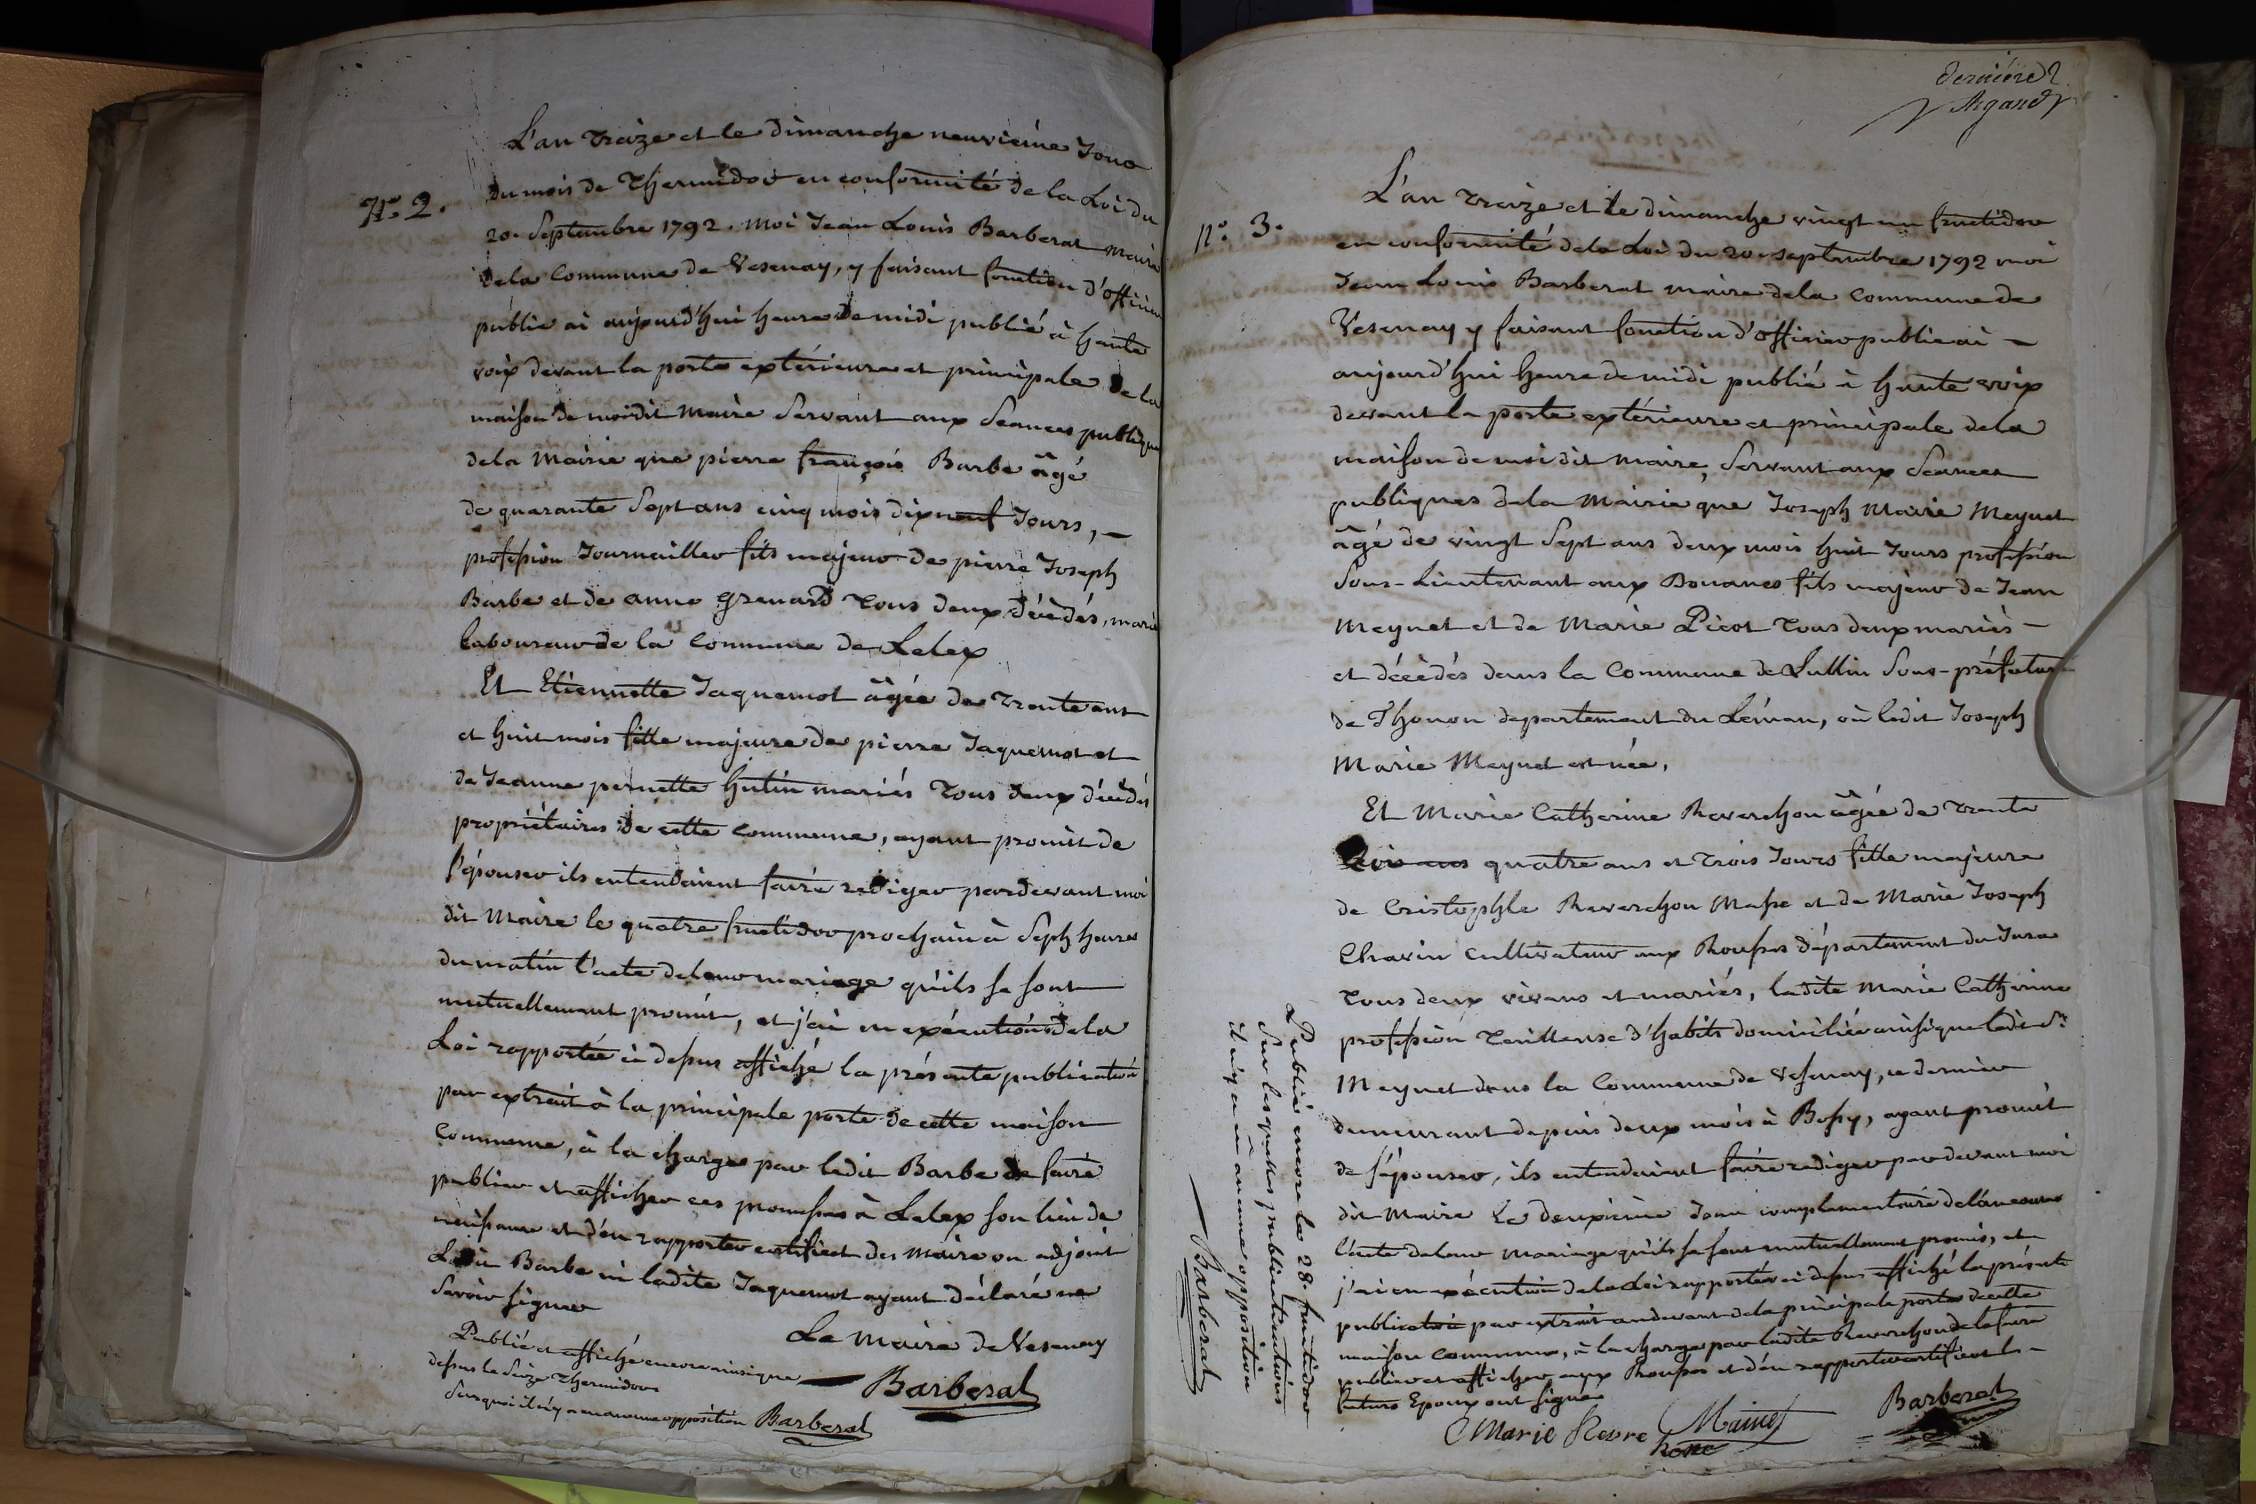 N.° 2.
L'an treize et le dimanche neuvième Jour
du mois de Thermidor en conformité de la Loi du
20. Septembre 1792. Moi Jean Louis Barberat Maire
de la Commune de Vesenay, y faisant fonction d'officier
public ai aujourd'hui heure de midi publié à haute
voix devant la porte extérieure et principale de la
maison de moidit Maire Servant aux Séances publiques
de la Mairie que pierre françois Barbe âgé
de quarante Sept ans cinq mois dix neuf Jours, —
profession Journaillier fils majeur de pierre Joseph
Barbe et de anne grenard tous deux décèdés, mariés
laboureur de la Commune de Lelex
Et Etiennette Jaquemot âgée de trente ans
et huit mois fille majeure de pierre Jaquemot et
de Jeanne pernette hutin mariés tous deux décèdés
propriétaires de cette Commune, ayant promit de
s'épouser ils entendaient faire rediger pardevant moi
dit Maire le quatre fructidor prochain à Sept heures
du matin l'acte de leur mariage qu'ils se sont
mutuellement promit, et j'ai en exécution de la
Loi rapportée ci dessus affiché la présente publication
par extrait à la principale porte de cette maison
Commune, à la charge par ledit Barbe de faire
publier et afficher ces promesses à Lelex son lieu de
naissance et d'en rapporter certificat des Maire ou adjoint
Ledit Barbe ni ladite Jaquemot ayant déclaré ne
Savoir signer
Le Maire de Vesenay
Barberat
Publié et affiché encore ainsi que
dessus le Seize Thermidor
Sur quoi il n'y a eu aucune opposition Barberat
dernière
Argand
N.° 3.
L'an treize et le dimanche vingt un fructidor
en conformité de la Loi du 20. septembre 1792 moi
Jean Louis Barberat maire de la Commune de
Vesenay y faisant fonction d'officier public ai —
aujourd'hui heure de midi publié à haute voix
devant la porte extérieure et principale de la
maison de moi dit Maire, Servant aux Séances
publiques de la Mairie que Joseph Marie Meynet
âgé de vingt Sept ans deux mois huit Jours profession
Sous-Lieutenant aux Douanes fils majeur de Jean
Meynet et de Marie Picot tous deux mariés —
et décèdés dans la Commune de Lullin Sous-préfecture
de Thonon departement du Léman, où ledit Joseph
Marie Meynet est née,
Et Marie Catherine Reverchon âgée de trente
trois ans quatre ans et trois Jours fille majeure
de Cristophle Reverchon Masse et de Marie Joseph
Chavin Cultivateur aux Rousses département du Jura
tous deux vivans et mariés, ladite Marie Catherine
profession Tailleuse d'habits domiciliée ainsi que ledit Sr.
Meynet dans la Commune de Vesenay, ce dernier
demeurant depuis deux mois à Bossy, ayant promit
de s'épouser, ils entendaient faire rediger pardevant moi
dit Maire Le deuxième Jour complementaire de l'an courant
l'acte de leur Mariage qu'ils se sont mutuellement promis, et
j'ai en exécution de la Loi rapportée ci dessus affiché la présente
publication par extrait au devant de la principale porte de cette
maison commune, à la charge par ladite Reverchon de la faire
publier et afficher aux Rousses et d'en rapporter certificat les —
futurs Epoux ont signé
Marie Revre
Maine
Barberat
Publié encore le 28. fructidor
Sur lesquelles publications
il n'y a eu aucune opposition
Barberat